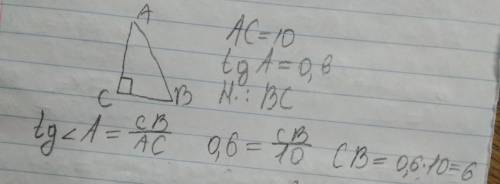 A
C
B
AC=10
tg A=0,6
Н.: BC
tg<A = CB/AC 0,6 = CB/10 CB=0,6·10=6